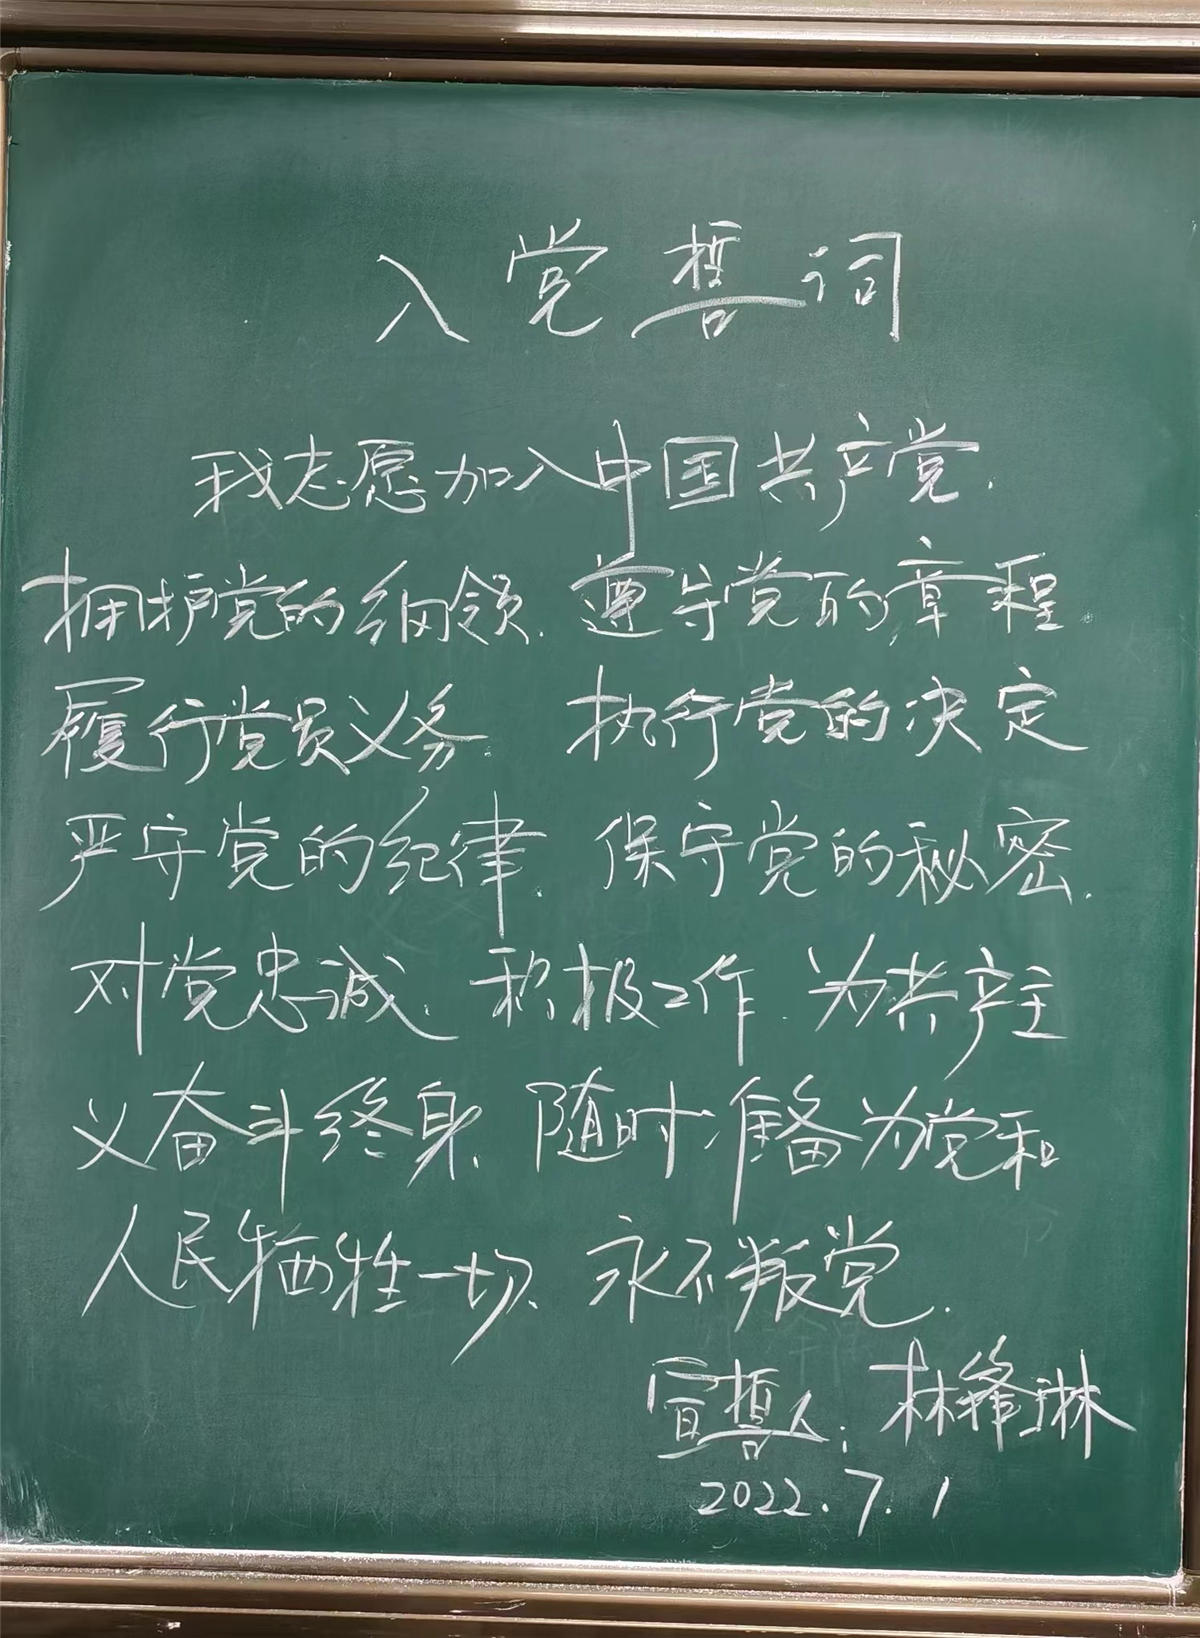 入党誓词
我志愿加入中国共产党.
拥护党的纲领.遵守党的章程
履行党员义务.执行党的决定
严守党的纪律.保守党的秘密.
对党忠诚.积极工作.为共产主
义奋斗终身.随时准备为党和
人民牺牲一切.永不叛党.
宣誓人:林锋琳
2022.7.1